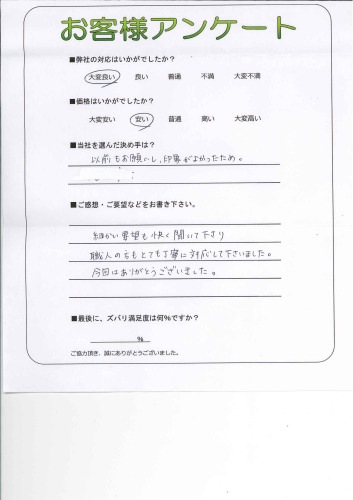 お客様アンケート
■弊社の対応はいかがでしたか？
大変良い 良い 普通 不満 大変不満
■価格はいかがでしたか？
大変安い 安い 普通 高い 大変高い
■当社を選んだ決め手は？
以前もお願いし、印象がよかったため。
■ご感想・ご要望などをお書き下さい。
細かい要望も快く聞いて下さり
職人の方もとても丁寧に対応して下さいました。
今回はありがとうございました。
■最後に、ズバリ満足度は何％ですか？
％
ご協力頂き、誠にありがとうございました。